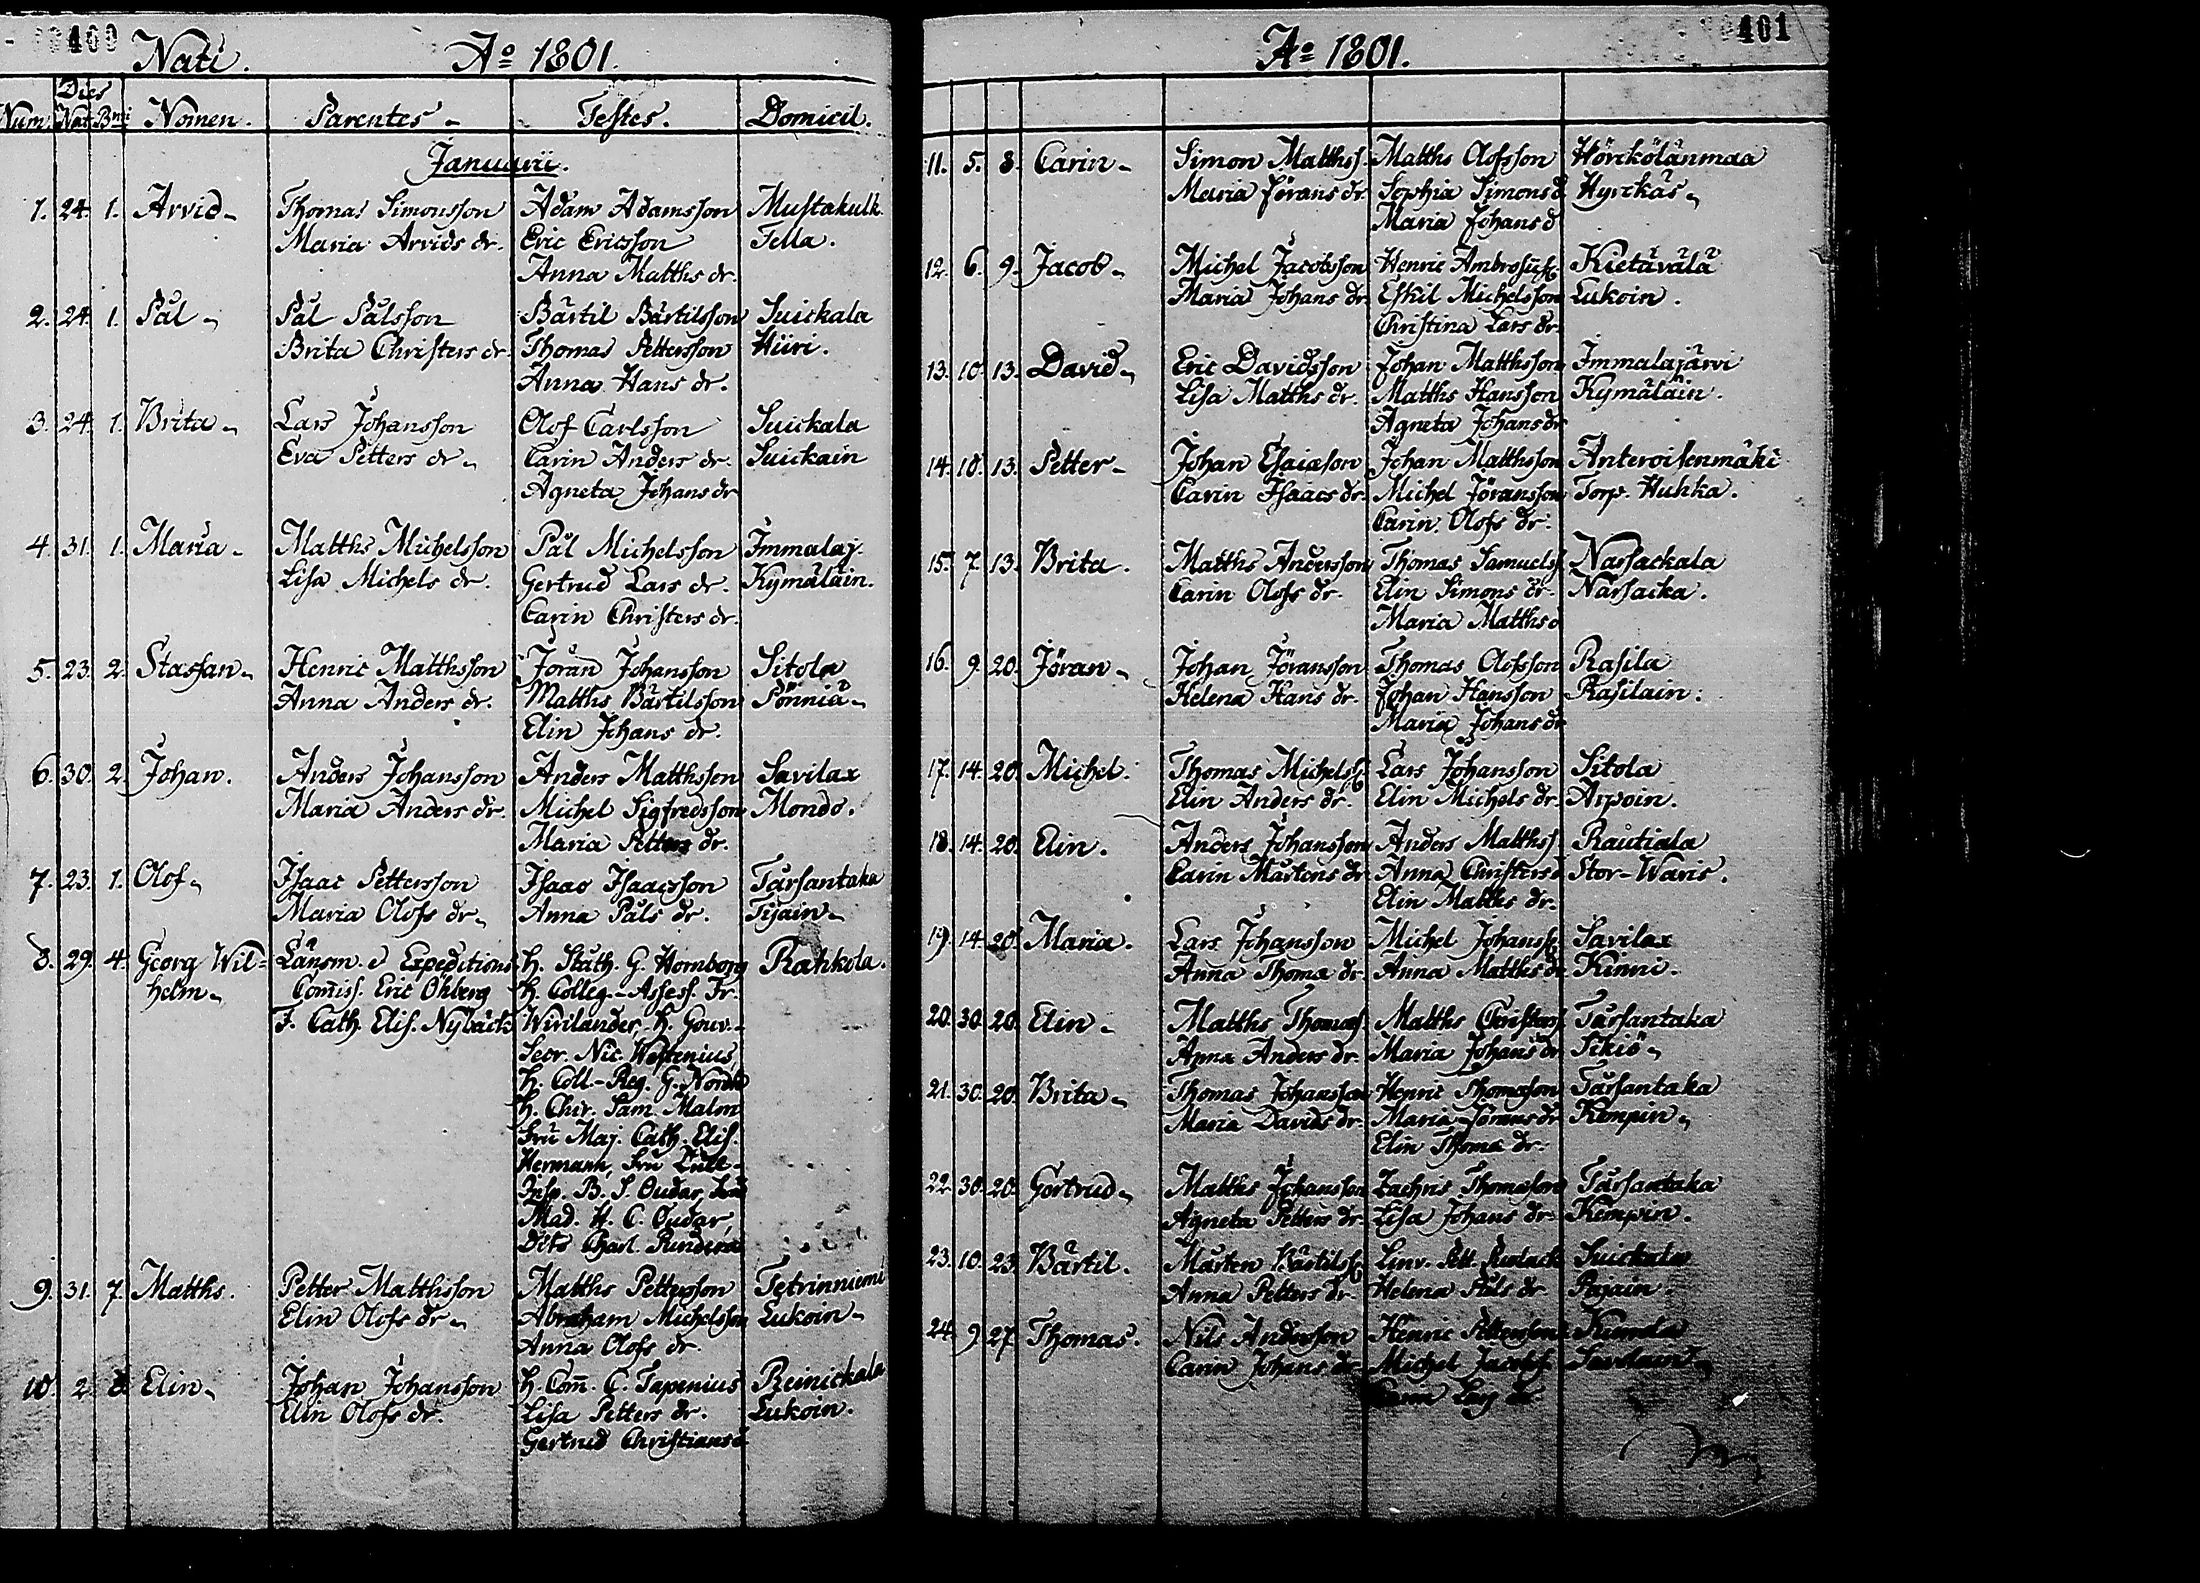 400
Nati. Aº 1801.
Dies
Num Nat Bmi Nomen. Parentes Testes. Domicil.
Januarii.
1. 24. 1. Arvid Thomas Simonsson Adam Adamsson Mustakulk.
Maria Arvids dr. Eric Ericsson Tella.
Anna Matths dr.
2. 24. 1. Pål Pål Pålsson Bärtil Bärtilsson Suickala
Brita Christers dr. Thomas Pettersson Hiiri.
Anna Hans dr.
3. 24. 1. Brita Lars Johansson Olof Carlsson Suickala
Eva Petters dr Carin Anders dr. Suickain
Agneta Johans dr
4. 31. 1. Maria Matths Michelsson Pål Michelsson Immalaj.
Lisa Michels dr. Gertrud Lars dr. Kymäläin.
Carin Christers dr.
5. 23. 2. Staffan Henric Matthsson Jöran Johansson Sitola
Anna Anders dr. Matths Bärtilsson Pönniä
Elin Johans dr.
6. 30. 2. Johan. Anders Johansson Anders Matthsson Savilax
Maria Anders dr. Michel Sigfredsson Mondo.
Maria Petters dr.
7. 23. 1. Olof Isaac Pettersson Isaac Isaacsson Tarsantaka
Maria Olofs dr Anna Påls dr. Tijain
8. 29. 4. Georg Wil= Länsm. Expeditions H. Stath. G. Hornborg Rahkola.
helm Comiss. Eric Öhberg H. Colleg.-Assess. Fr.
F. Cath. Elis. Nybäck Wirilander, H. Gouv.
Secr. Nic. Westenius
H. Coll.-Reg. G.
H. Chir. Sam. Malm
Fru Maj. Cath. Elis.
Hermann, Fru
Insp. B. S. Oudar,
Mad. H. C. Oudar,
Charl.
9. 31. 7. Matths. Petter Matthsson Matths Pettersson Tetrinniemi
Elin Olofs dr Abraham Michelsson Lukoin
Anna Olofs dr.
10. 2. 8. Elin Johan Johansson H. Com. C. Tapenius Reinickala
Elin Olofs dr. Lisa Petters dr. Lukoin.
Gertrud Christians d
401
Aº 1801.
11. 5. 8. Carin Simon Matthss. Matths Olofsson Hörckölänmaa
Maria Jörans dr. Sophia Simons d Hyrckäs
Maria Johans d
12. 6. 9. Jacob Michel Jacobsson Henric Ambrosiiss. Kietävälä
Maria Johans dr. Eskil Michelsson Lukoin.
Christina Lars dr.
13. 10. 13. David Eric Davidsson Johan Matthsson Immalajärvi
Lisa Matths dr. Matths Hansson Kymäläin.
Agneta Johans dr
14. 10. 13. Petter Johan Esaiason Johan Matthsson Anteroisenmäki
Carin Isaacs dr. Michel Jöransson Torp. Huhka.
Carin Olofs dr.
15. 7. 13. Brita. Matths Andersson Thomas Samuelss. Narsackala
Carin Olofs dr. Elin Simons dr. Narsacka.
Maria Matths d
16. 9. 20. Jöran Johan Jöransson Thomas Olofsson Rasila
Helena Hans dr. Johan Hansson Rasilain.
Maria Johans dr
17. 14. 20. Michel. Thomas Michelss. Lars Johansson Sitola
Elin Anders dr. Elin Michels dr. Arpoin.
18. 14. 20. Elin. Anders Johansson Anders Matthss. Rautiala
Carin Mårtens dr Anna Christers d Stor-Waris.
Elin Matths dr.
19. 14. 20. Maria. Lars Johansson Michel Johanss. Savilax
Anna Thomæ dr. Anna Matths dr Kinni.
20. 30. 20. Elin Matths Thomæs. Matths Christerss. Tarsantaka
Anna Anders dr. Maria Johans dr
21. 30. 20. Brita Thomas Johansson Henric Thomæson Tarsantaka
Maria Davids dr. Maria Jörans dr Kempin
Elin Thomæ dr.
22. 30. 20. Gertrud Matths Johansson Zachris Thomæson Tarsantaka
Agneta Petters dr. Lisa Johans dr. Kempin.
23. 10. 23. Bärtil. Mårten Bärtilss. Pett. Suickala
Anna Petters dr. Helena Påls dr Pajain.
24. 9. 27. Thomas. Nils Andersson Henric Pettersson
Carin Johans dr. Michel Jacobss.
Carin Lars dr